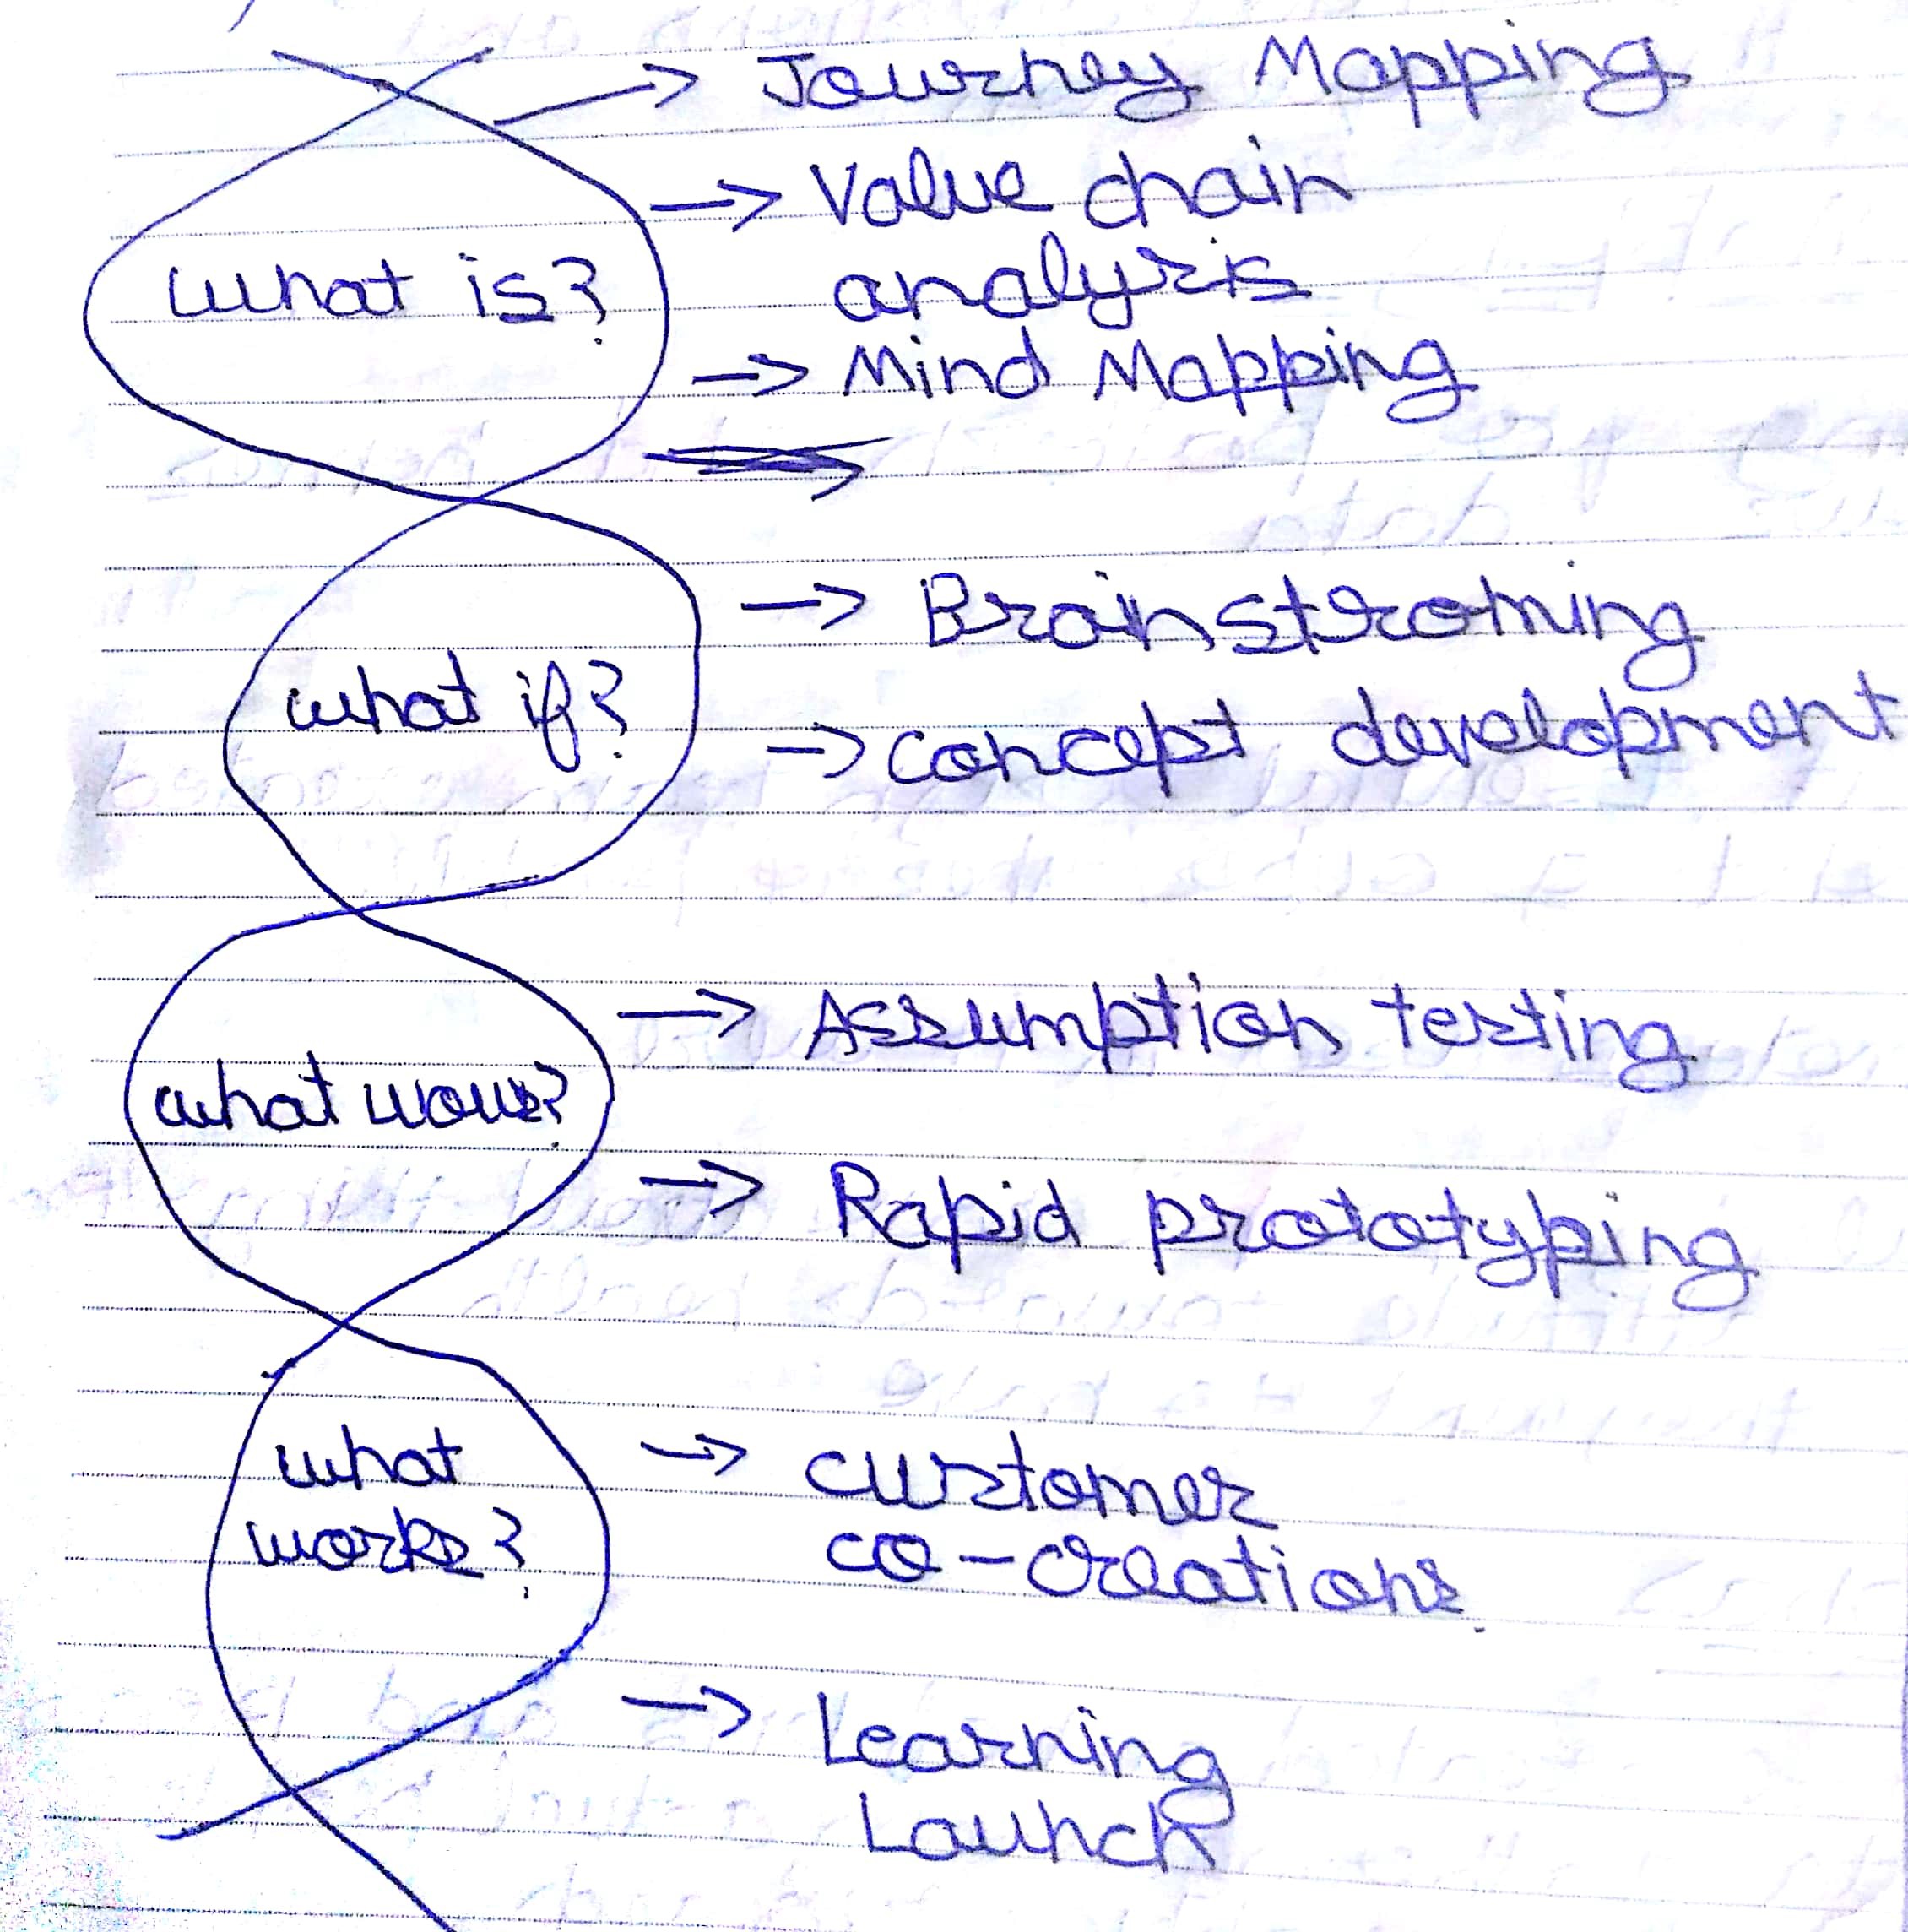 Journey Mapping
Value chain
analysis
what is?
Mind Mapping
Brainstroming
what if?
concept development
Assumption testing
what wows?
Rapid prototyping
what
works?
customer
co-creations.
Learning
Launch